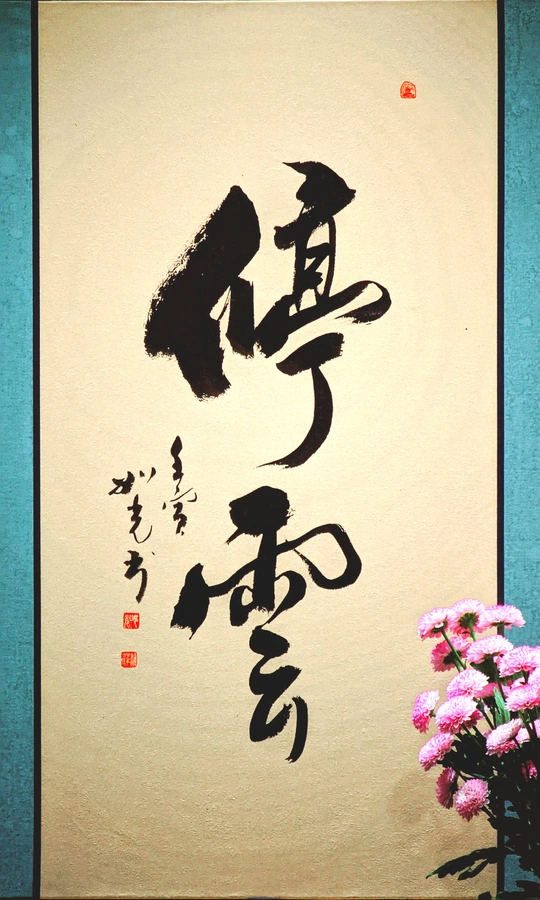 停雲
壬寅
如光书